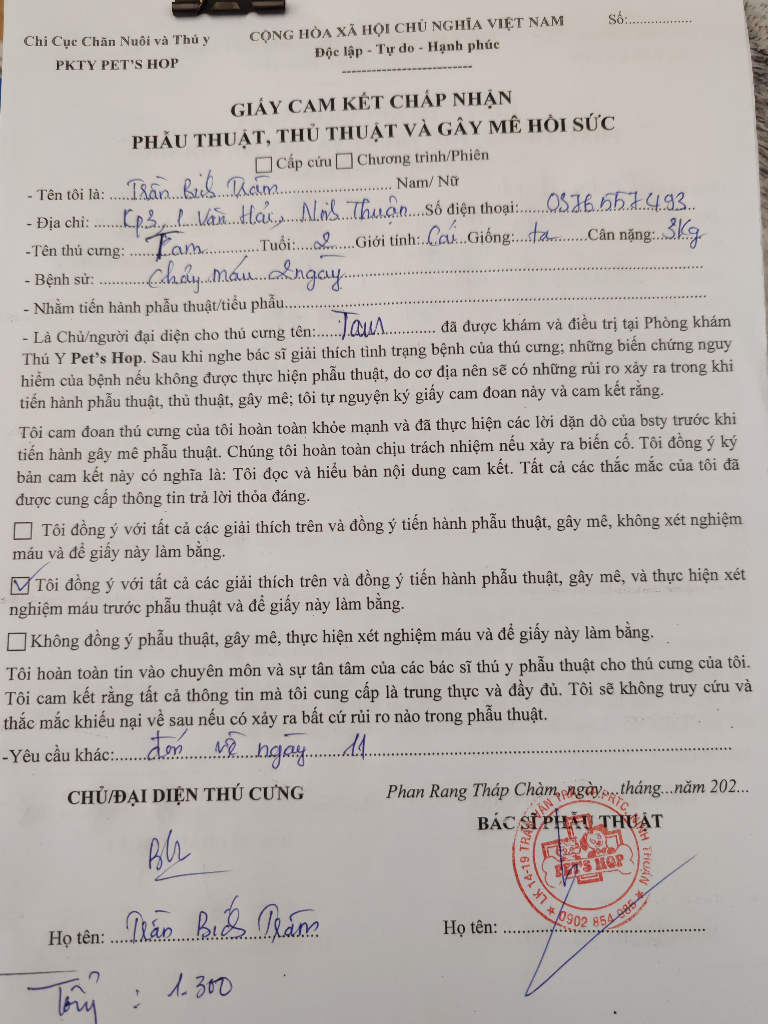 Chi Cục Chăn Nuôi và Thú y
PKTY PET'S HOP
CỘNG HÒA XÃ HỘI CHỦ NGHĨA VIỆT NAM
Độc lập - Tự do - Hạnh phúc
---------------------------
Số:.................
GIẤY CAM KẾT CHẤP NHẬN
PHẪU THUẬT, THỦ THUẬT VÀ GÂY MÊ HỒI SỨC
☐ Cấp cứu ☐ Chương trình/Phiên
- Tên tôi là: Trần Bích Trâm Nam/ Nữ
- Địa chỉ: Kp3, Văn Hải, Ninh Thuận Số điện thoại: 0376.557.493
-Tên thú cưng: Tam Tuổi: 2 Giới tính: Cái Giống: ta Cân nặng: 3kg
- Bệnh sử: chảy máu 2 ngày
- Nhằm tiến hành phẫu thuật/tiểu phẫu
- Là Chủ/người đại diện cho thú cưng tên: đã được khám và điều trị tại Phòng khám
Thú Y Pet's Hop. Sau khi nghe bác sĩ giải thích tình trạng bệnh của thú cưng; những biến chứng nguy
hiểm của bệnh nếu không được thực hiện phẫu thuật, do cơ địa nên sẽ có những rủi ro xảy ra trong khi
tiến hành phẫu thuật, thủ thuật, gây mê; tôi tự nguyện ký giấy cam đoan này và cam kết rằng.
Tôi cam đoan thú cưng của tôi hoàn toàn khỏe mạnh và đã thực hiện các lời dặn dò của bsty trước khi
tiến hành gây mê phẫu thuật. Chúng tôi hoàn toàn chịu trách nhiệm nếu xảy ra biến cố. Tôi đồng ý ký
bản cam kết này có nghĩa là: Tôi đọc và hiểu bản nội dung cam kết. Tất cả các thắc mắc của tôi đã
được cung cấp thông tin trả lời thỏa đáng.
☐ Tôi đồng ý với tất cả các giải thích trên và đồng ý tiến hành phẫu thuật, gây mê, không xét nghiệm
máu và để giấy này làm bằng.
☑ Tôi đồng ý với tất cả các giải thích trên và đồng ý tiến hành phẫu thuật, gây mê, và thực hiện xét
nghiệm máu trước phẫu thuật và để giấy này làm bằng.
☐ Không đồng ý phẫu thuật, gây mê, thực hiện xét nghiệm máu và để giấy này làm bằng.
Tôi hoàn toàn tin vào chuyên môn và sự tân tâm của các bác sĩ thú y phẫu thuật cho thú cưng của tôi.
Tôi cam kết rằng tất cả thông tin mà tôi cung cấp là trung thực và đầy đủ. Tôi sẽ không truy cứu và
thắc mắc khiếu nại về sau nếu có xảy ra bất cứ rủi ro nào trong phẫu thuật.
-Yêu cầu khác: đón về ngày 11
CHỦ/ĐẠI DIỆN THÚ CƯNG
Phan Rang Tháp Chàm, ngày....tháng...năm 202...
BÁC SĨ PHẪU THUẬT
PET'S HOP
Họ tên: Trần Bích Trâm
Họ tên:
Tổng : 1.300